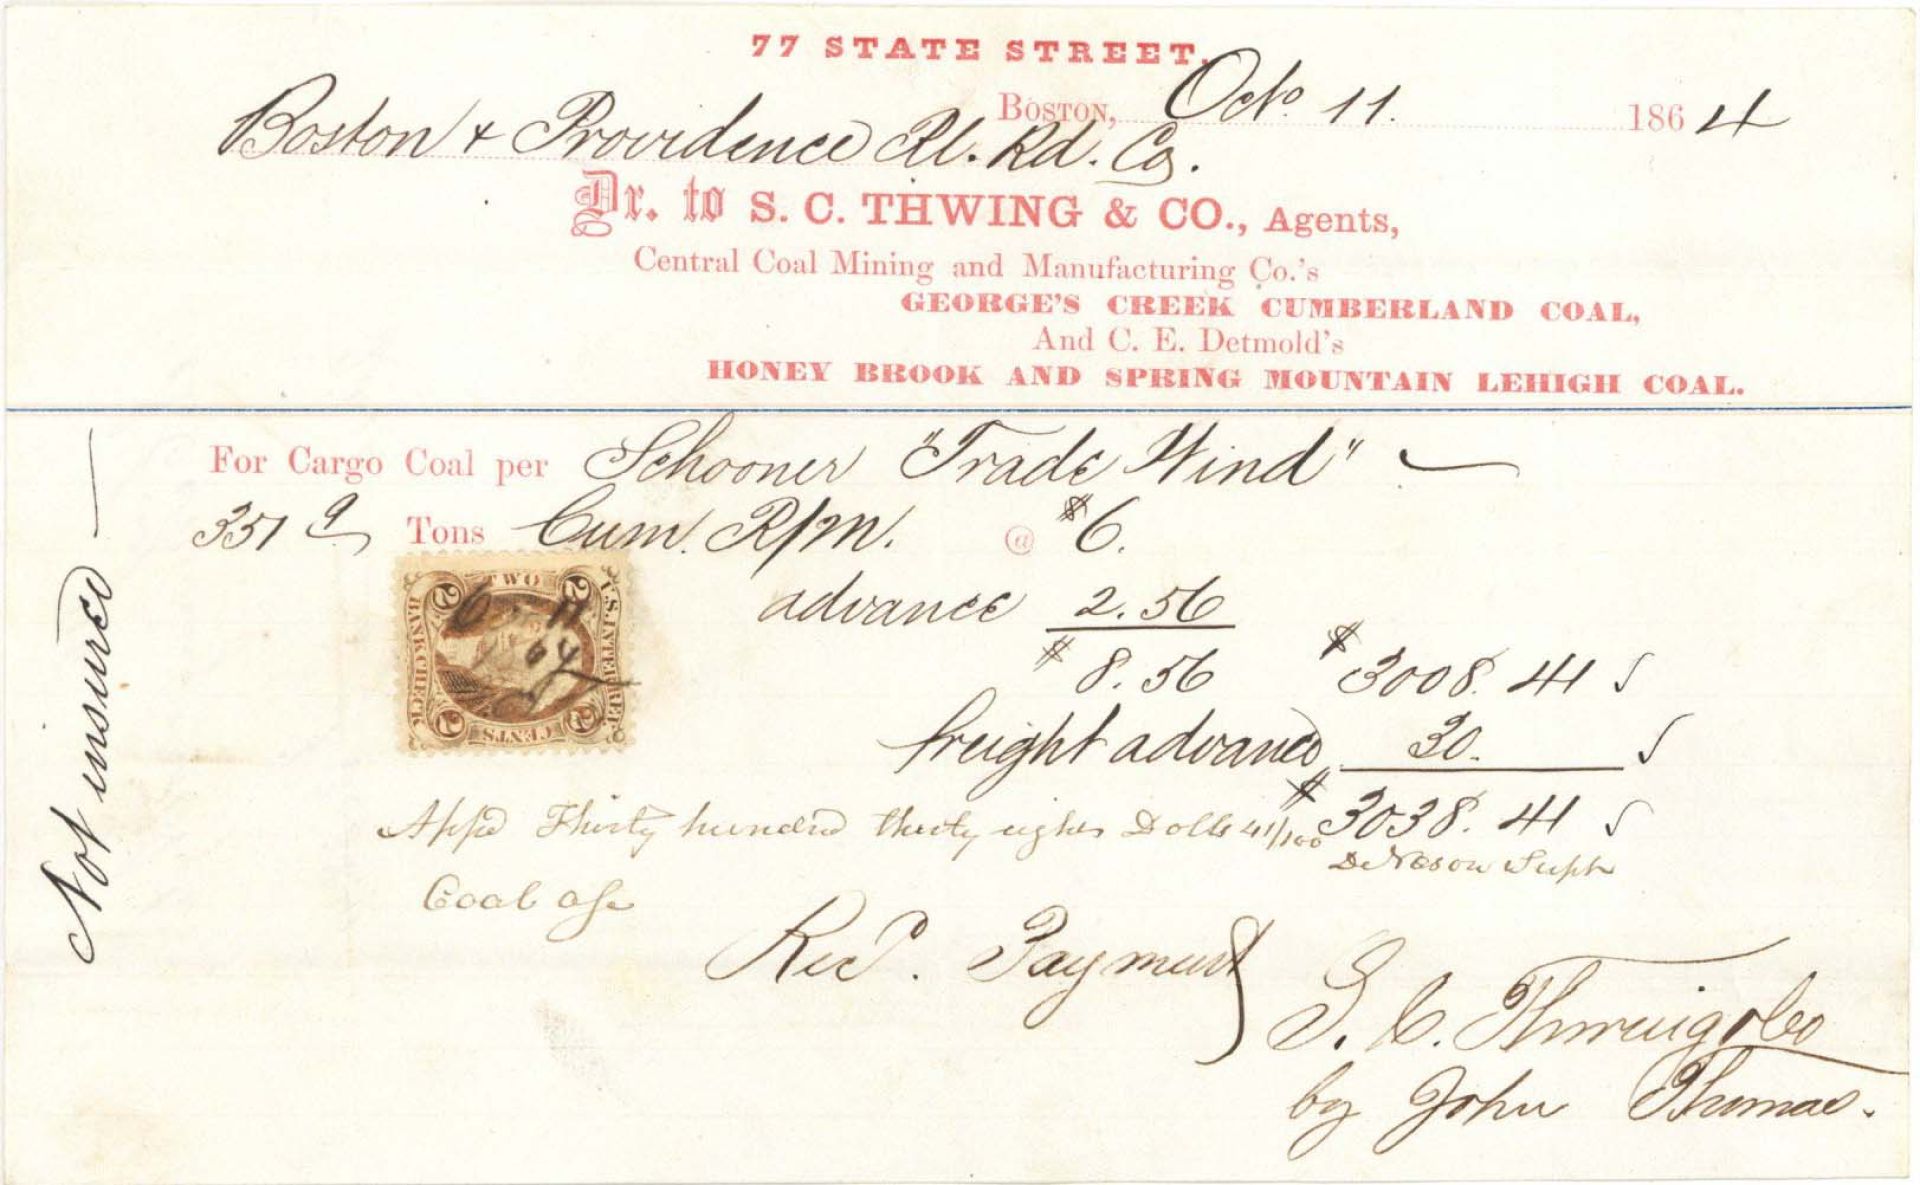 77 STATE STREET.
BOSTON, Octo. 11. 1864
Boston & Providence Rl. Rd. Co.
Dr. to S. C. THWING & CO., Agents,
Central Coal Mining and Manufacturing Co.'s
GEORGE'S CREEK CUMBERLAND COAL,
And C. E. Detmold's
HONEY BROOK AND SPRING MOUNTAIN LEHIGH COAL.
For Cargo Coal per Schooner "Trade Wind"
351 9 Tons Cum. R/M. @ $6.
advance 2.56
$8.56 $3008.41
freight advanced 30.
$3038.41
Appd Thirty hundred thirty eight Dolls 41/100
Supt
Coal a/c
Recd. Payment
S. C. Thwing & Co
by John Thomas.
Not insured
U.S. INTER. REV.
TWO
CENTS
BANK CHECK
2 2 2 2